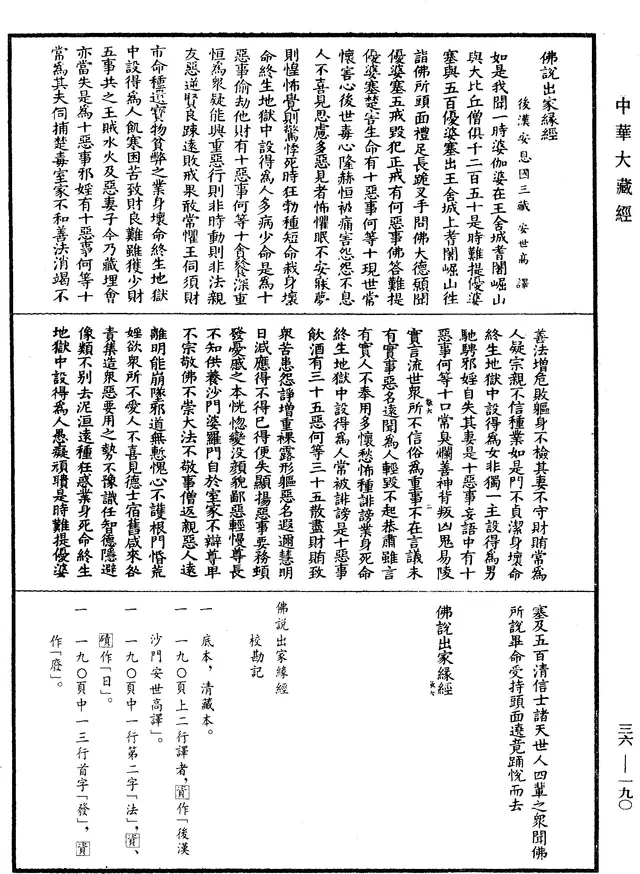 中華大藏經
佛說出家緣經
後漢安息國三藏安世高譯
如是我聞一時婆伽婆在王舍城耆闍崛山
與大比丘僧俱千二百五十是時難提優婆
塞與五百優婆塞出王舍城上耆闍崛山往
詣佛所頭面禮足長跪叉手問佛大德願聞
優婆塞五戒毀犯正戒有何惡事佛答難提
優婆塞楚害生命有十惡事何等十現世常
懷害心後世毒心隆赫恒被痛害怨怨不息
人不喜見思慮多惡見者怖懼眠不安寐夢
則惶怖覺則驚悸死時狂勃種短命栽身壞
命終生地獄中設得為人多病少命是為十
惡事偷劫他財有十惡事何等十貪餮深重
恒為衆疑能興重惡行則非時動則非法親
友惡逆賢良踈遠敗戒果敢常懼王伺須財
市命種遝寶物貧弊之業身壞命終生地獄
中設得為人飢寒困苦致財良難雖獲少財
五事共之王賊水火及惡妻子令乃藏埋會
亦當失是為十惡事邪婬有十惡事何等十
常為其夫伺捕楚毒室家不和善法消竭不
善法增危敗軀身不檢其妻不守財賄常為
人疑宗親不信種業如是門不貞潔身壞命
終生地獄中設得為女非獨一主設得為男
馳騁邪婬自失其妻是十惡事妄語中有十
惡事何等十口常臭爛善神背叛凶鬼易陵
實言流世衆所不信俗為重事不在言議未
有實事惡名遠聞為人輕毀不起恭肅雖言
有實人不奉用多懷愁怖種誹謗業身死命
終生地獄中設得為人常被誹謗是十惡事
飲酒有三十五惡何等三十五散盡財賄致
衆苦患怨諍增重裸露形軀惡名遐邇慧明
日減應得不得已得便失顯揚惡事要務頓
發憂感之本恍惚變沒顏貌鄙惡輕慢尊長
不知供養沙門婆羅門自於室家不辯尊卑
不宗敬佛不崇大法不敬事僧返親惡人遠
離明能崩墜邪道無慙愧心不護根門惛荒
婬欲衆所不愛人不喜見德士宿舊咸來欲
責集造衆惡要用之勢不豫識任智德隱避
像類不別去泥洹遠種狂惑業身死命終生
地獄中設得為人愚癡頑嚚是時難提優婆
塞及五百清信士諸天世人四輩之衆聞佛
所說畢命受持頭面遶竟踊悅而去
佛說出家緣經
佛說出家緣經
校勘記
一　底本，清藏本。
一　一九〇頁上二行譯者，資作「後漢
沙門安世高譯」。
一　一九〇頁中一行第二字「法」，資、
磧作「日」。
一　一九〇頁中一三行首字「發」，資
作「廢」。
三六—一九〇